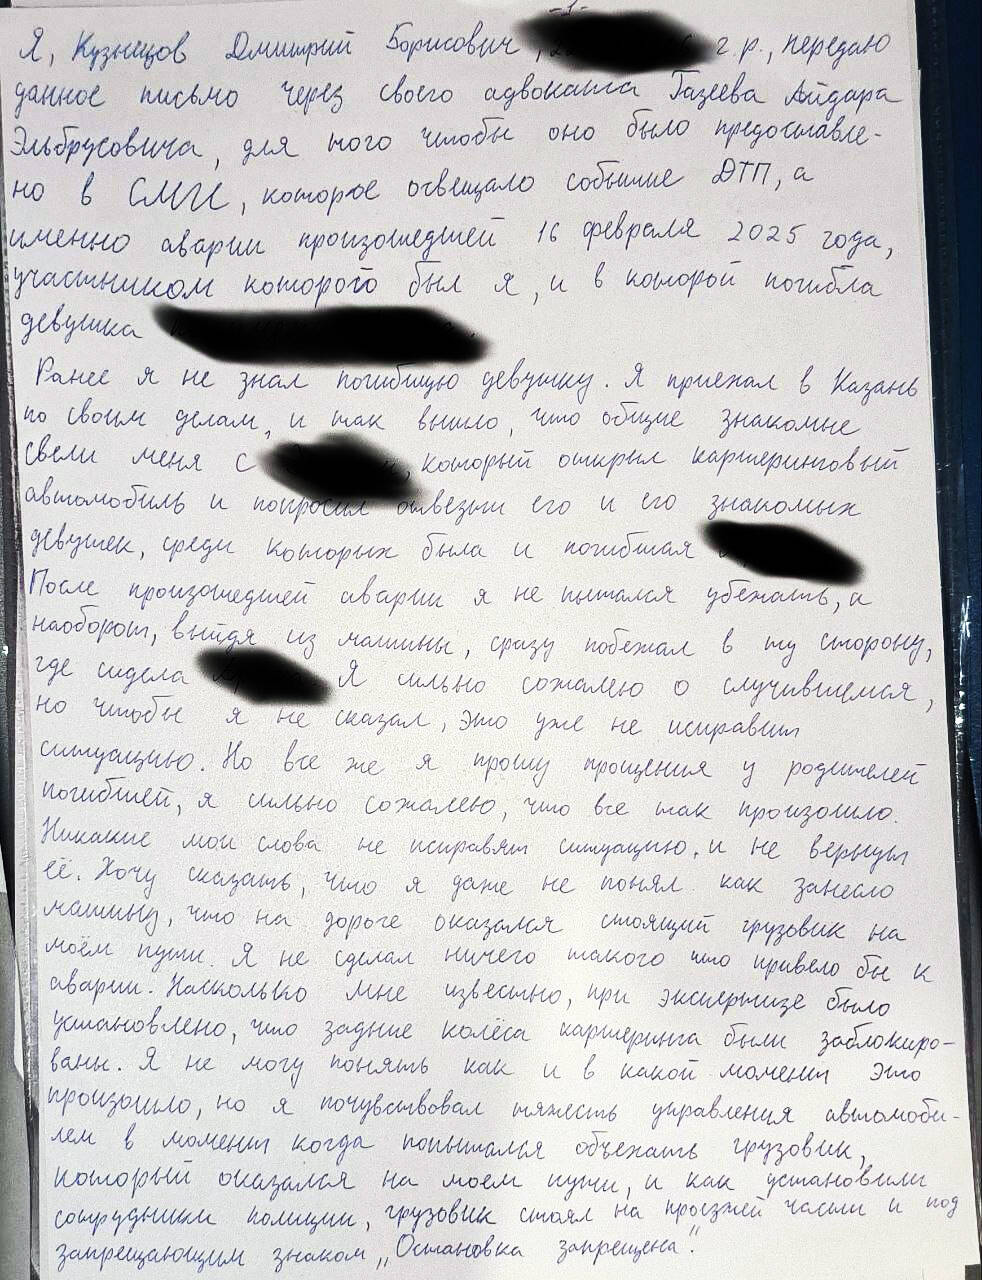 -1-
Я, Кузнецов Дмитрий Борисович, г.р., передаю
данное письмо через своего адвоката Газеева Айдара
Эльбрусовича, для того чтобы оно было предоставле-
но в СМИ, которое освещало событие ДТП, а
именно аварии произошедшей 16 февраля 2025 года,
участником которого был я, и в которой погибла
девушка
Ранее я не знал погибшую девушку. Я приехал в Казань
по своим делам, и так вышло, что общие знакомые
свели меня с , который открыл каршеринговый
автомобиль и попросил отвезти его и его знакомых
девушек, среди которых была и погибшая
После произошедшей аварии я не пытался убежать, а
наоборот, выйдя из машины, сразу побежал в ту сторону,
где сидела Я сильно сожалею о случившемся,
но чтобы я не сказал, это уже не исправит
ситуацию. Но все же я прошу прощения у родителей
погибшей, я сильно сожалею, что все так произошло.
Никакие мои слова не исправят ситуацию, и не вернут
её. Хочу сказать, что я даже не понял как занесло
машину, что на дороге оказался стоящий грузовик на
моём пути. Я не сделал ничего такого что привело бы к
аварии. Насколько мне известно, при экспертизе было
установлено, что задние колёса каршеринга были заблокиро-
ваны. Я не могу понять как и в какой момент это
произошло, но я почувствовал тяжесть управления автомоби-
лем в момент когда попытался объехать грузовик,
который оказался на моем пути, и как установили
сотрудники полиции, грузовик стоял на проезжей части и под
запрещающим знаком „Остановка запрещена".